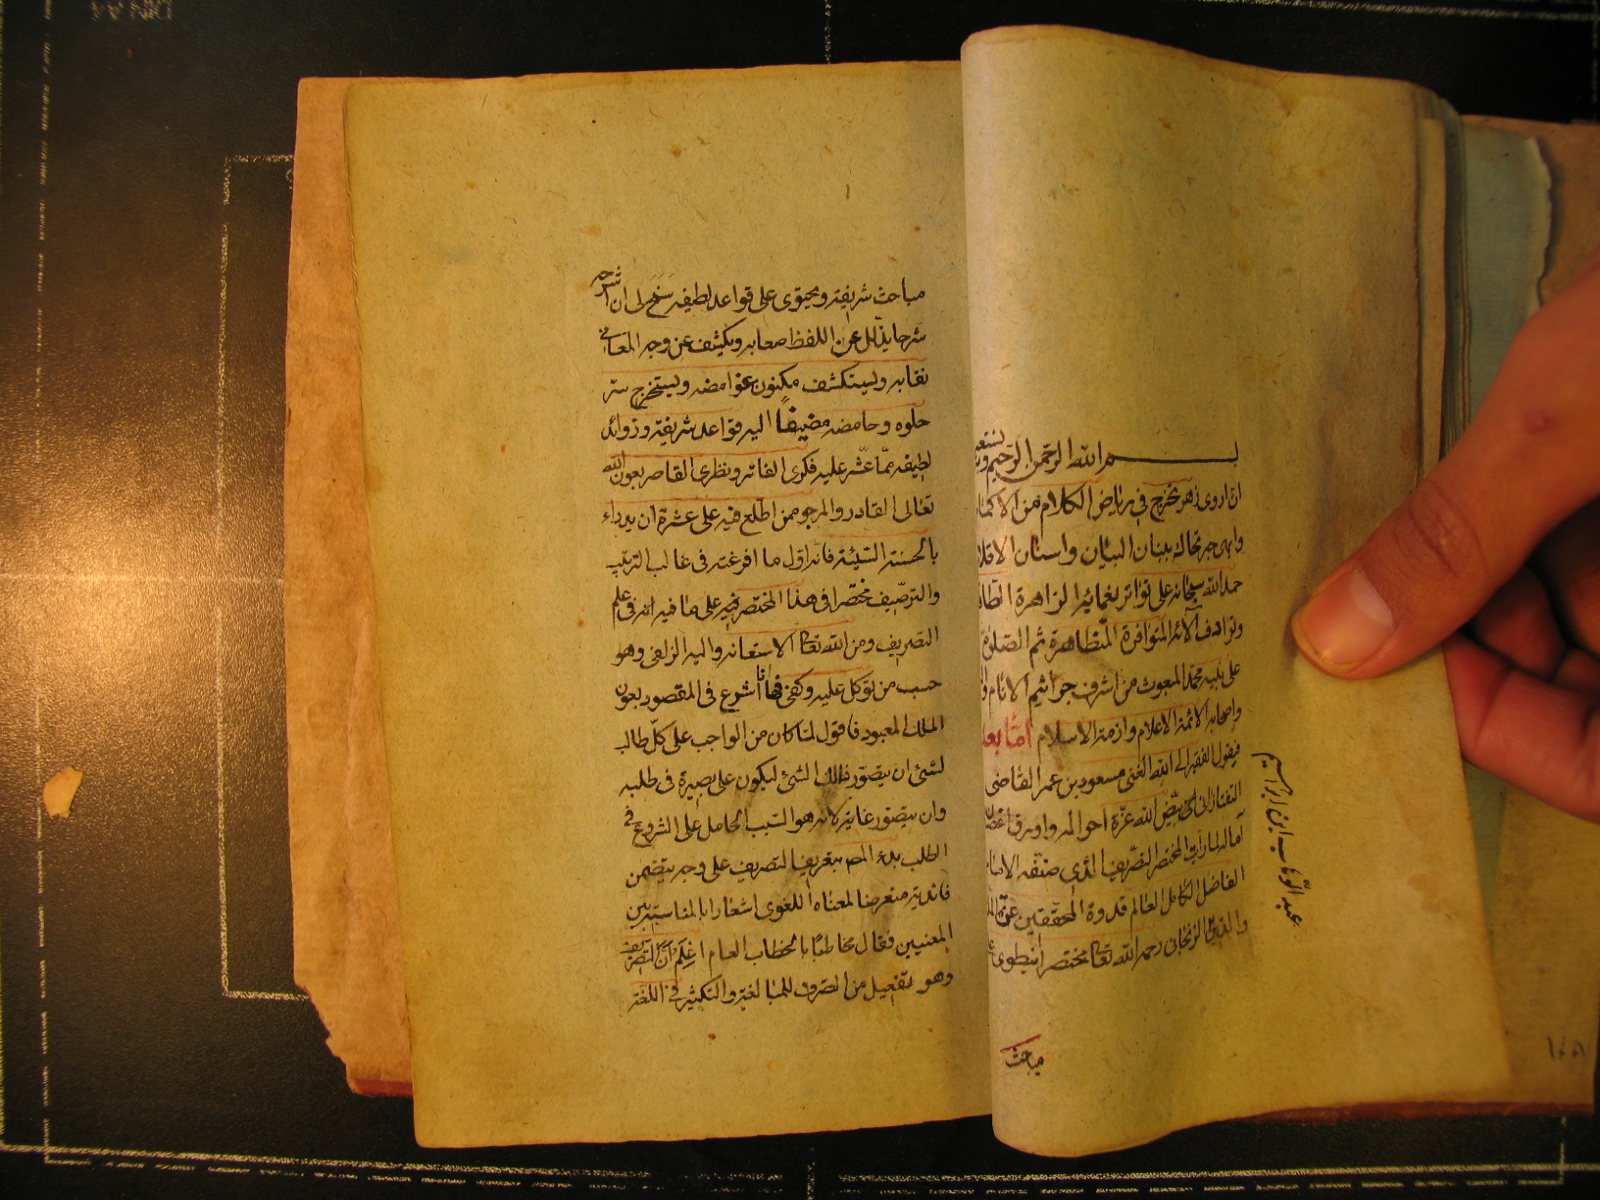 بسم الله الرحمن الرحيم وبه نستعين
ان اروى زهر تخرج في رياض الكلام من الاكمام
وابهى حبر تحاك ببنان البيان واسنان الاقلام
حمد الله سبحانه على تواتر نعمائه الزاهرة الظاهرة
وترادف آلائه المتوافرة المتظاهرة ثم الصلوة
على نبيه محمد المبعوث من اشرف جراثيم الانام
واصحابه الائمة الاعلام وازمة الاسلام اما بعد
فيقول الفقير الى الله الغنى مسعود بن عمر القاضى
التفتازانى بيض الله غرة احواله واورق اغصان
آماله لما رايت المختصر التصريف الذى صنفه الامام
الفاضل الكامل العالم قدوة المحققين عز الملة
والدين الزنجانى رحمه الله تعالى مختصرا ينطوى على
مباحث
عبد الوهاب ابن ابراهيم
مباحث شريفة ويحتوى على قواعد لطيفه سنح لى ان اشرحه
شرحا يذلل عن اللفظ صعابه ويكشف عن وجه المعانى
نقابه ويستكشف مكنون غوامضه ويستخرج سر
حلوه وحامضه مضيفا اليه فوائد شريفة وزوائد
لطيفه مما عثر عليه فكرى الفاتر ونظرى القاصر بعون الله
تعالى القادر والمرجو ممن اطلع فيه على عشرة ان يدراء
بالحسنة السيئة فانه اول ما افرغته فى غالب الترتيب
والترصيف مختصرا فى هذا المختصر على ما فيه انه فى علم
التصريف ومن الله تعالى الاستعانه واليه الزلفى وهو
حسب من توكل عليه وكفى فها انا اشرع فى المقصود بعون
الملك المعبود فاقول لما كان من الواجب على كل طالب
لشئ ان يتصور ذلك الشئ ليكون على بصيرة فى طلبه
وان يتصور غايته لانه هو السبب الحامل على الشروع فى
الطلب بدء المص بتعريف التصريف على وجه يتضمن
فائدته متعرضا لمعناه اللغوى اشعارا بالمناسبة بين
المعنيين فقال مخاطبا بالخطاب العام اعلم ان التصريف
وهو تفعيل من الصرف للمبالغة والتكثير فى اللغة